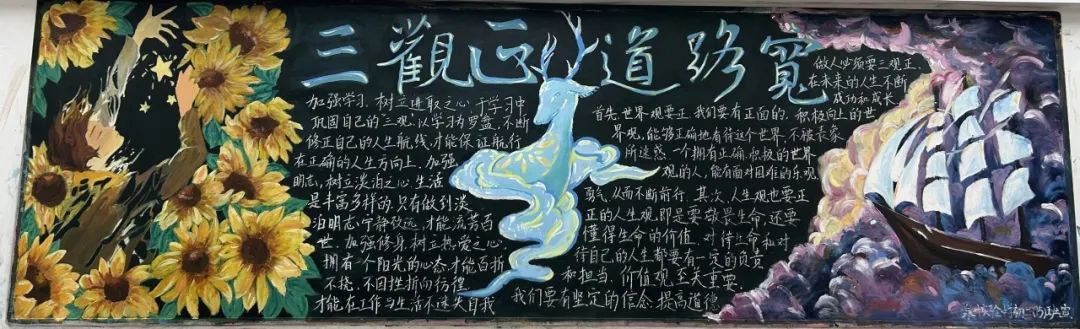 三觀正道路寬
加强学习,树立进取之心,于学习中
巩固自己的三观,以学习为罗盘,不断
修正自己的人生航线,才能保证航行
在正确的人生方向上,加强
明志,树立淡泊之心,生活
是丰富多样的,只有做到淡
泊明志,宁静致远,才能流芳百
世,加强修身,树立热爱之心,
拥有一个阳光的心态,才能百折
不挠,不因挫折而彷徨,
才能在工作与生活不迷失自我
做人必须要三观正,
在未来的人生不断
成功和成长
首先,世界观要正,我们要有正面的,积极向上的世
界观,能够正确地看待这个世界,不被表象
所迷惑,一个拥有正确,积极的世界
观的人,能有面对困难的乐观,
勇气,从而不断前行,其次,人生观也要正,
正的人生观,即是要敬畏生命,还要
懂得生命的价值,对待生命和对
待自己的人生都要有一定的负责
和担当,价值观至关重要,
我们要有坚定的信念,提高道德